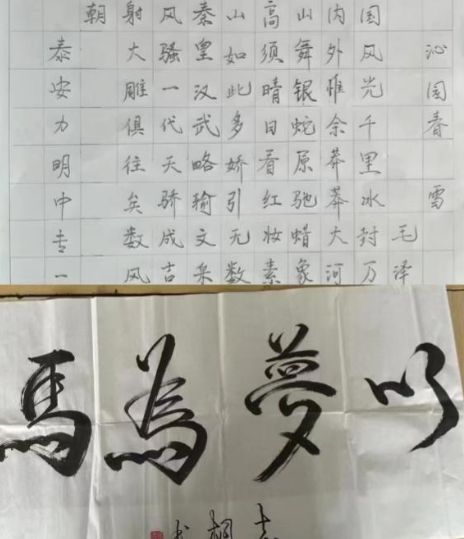 沁园春 雪
毛泽
国风光千里冰封万
内外惟余莽莽大河
山舞银蛇原驰蜡象
高须晴日看红妆素
山如此多娇引无数
秦皇汉武略输文采
风骚一代天骄成吉
射大雕俱往矣数风
朝
泰安力明中专一
以夢為馬